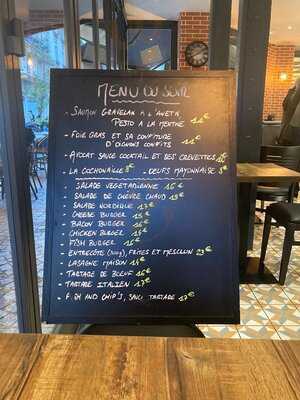 MENU DU SOIR
- SAUMON GRAVELAX A L'ANETH
PESTO A LA MENTHE 14€
- FOIE GRAS ET SA CONFITURE
D'OIGNONS CONFITS 14€
- AVOCAT SAUCE COCKTAIL ET DES CREVETTES
- LA COCHONAILLE 8€ - OEUFS MAYONNAISE
- SALADE VEGETARIENNE 16€
- SALADE DE CHÈVRE CHAUD 15€
- SALADE NORDIQUE 17€
- CHEESE BURGER 15€
- BACON BURGER 16€
- CHICKEN BURGER 15€
- FISH BURGER 16€
- ENTRECÔTE (300g), FRITES ET MESCLUN 23€
- LASAGNE MAISON 14€
- TARTARE DE BOEUF 16€
- TARTARE ITALIEN 17€
- FISH AND CHIP'S, SAUCE TARTARE 17€